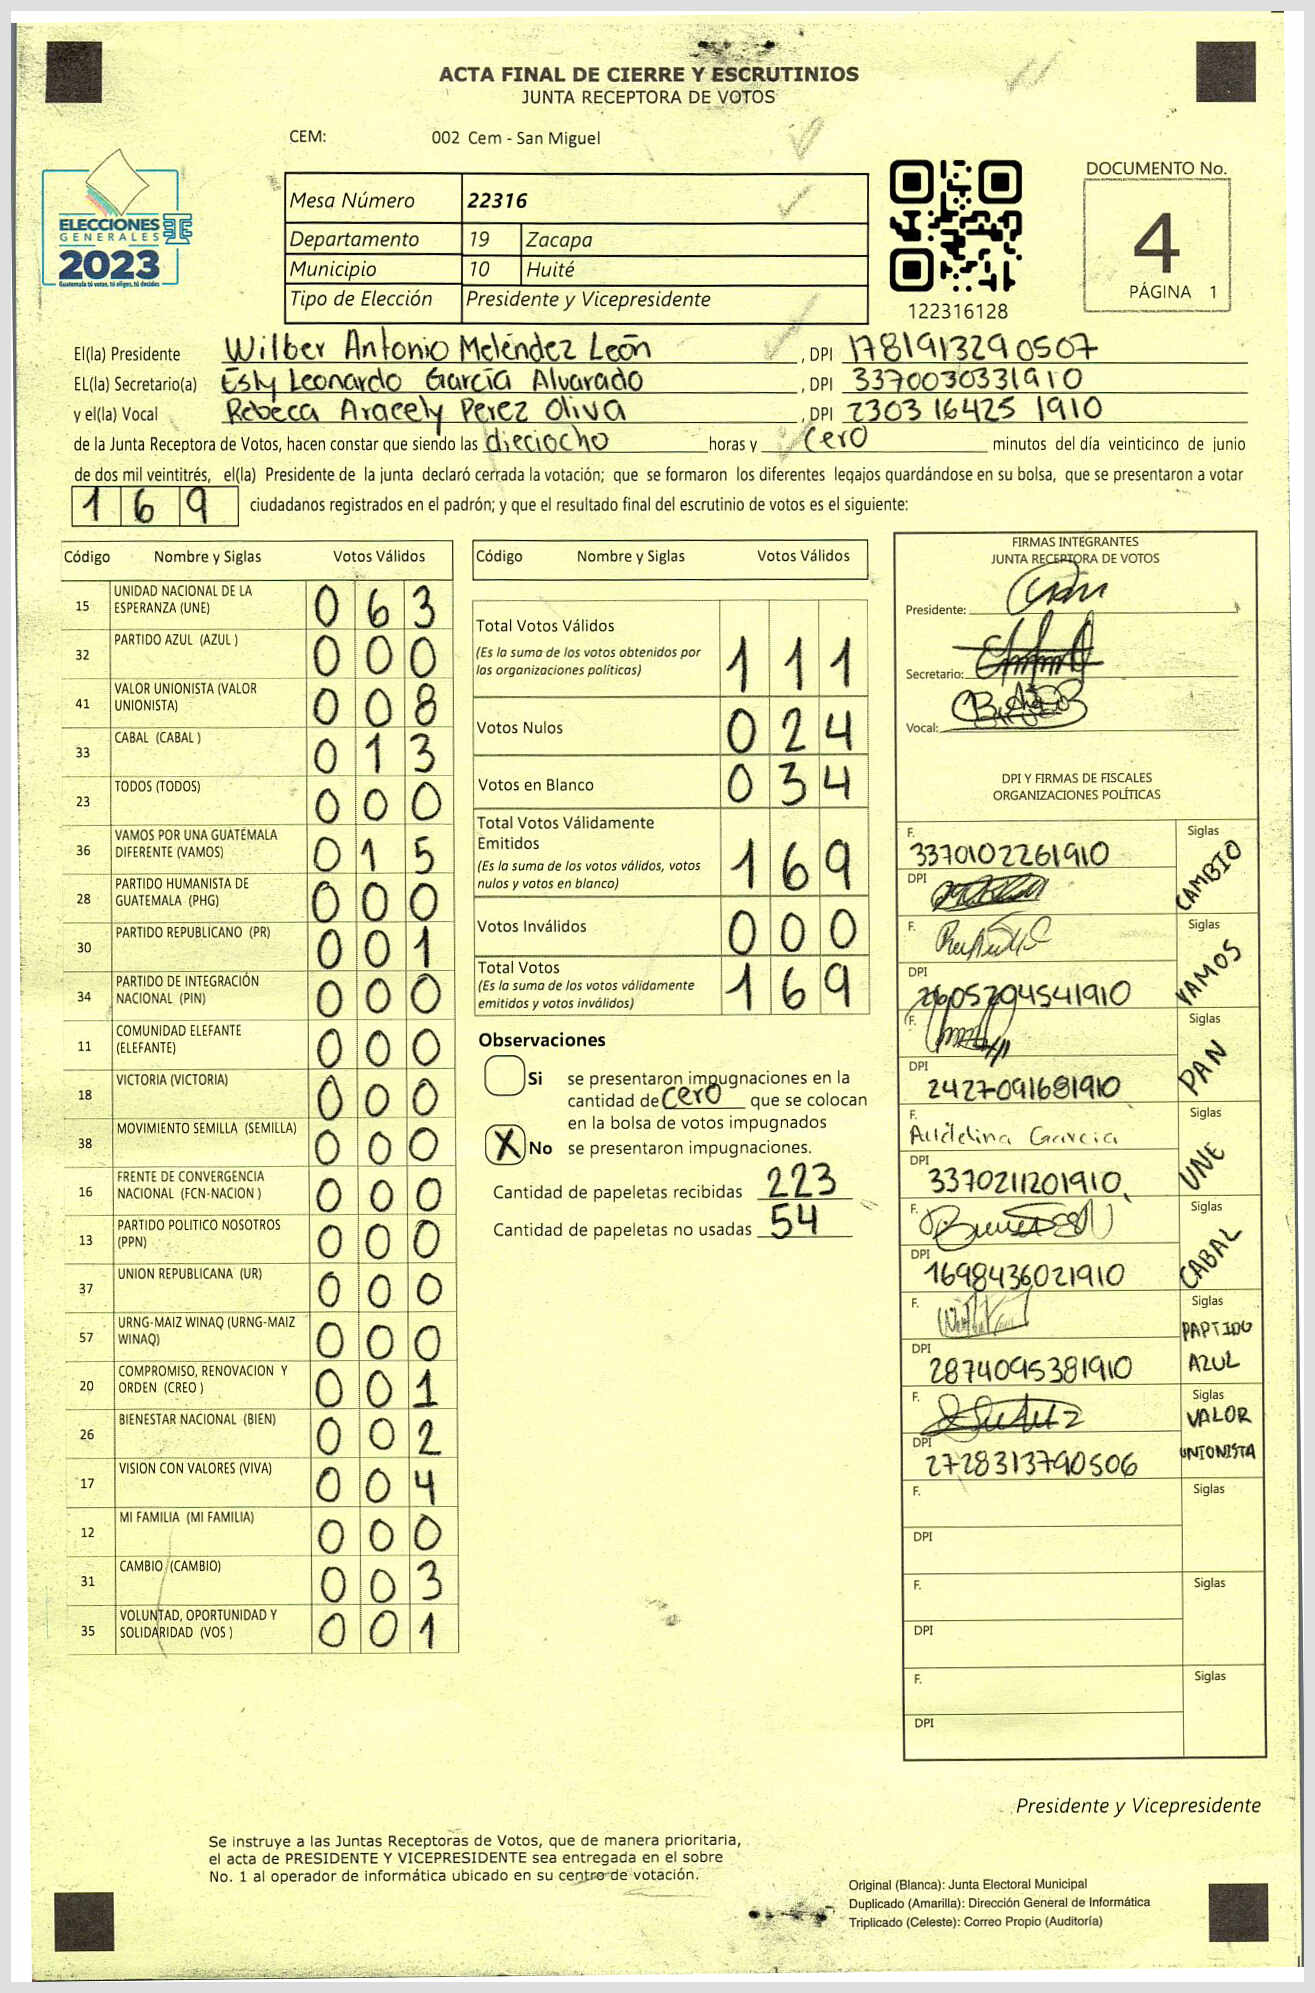 ACTA FINAL DE CIERRE Y ESCRUTINIOS
JUNTA RECEPTORA DE VOTOS
CEM: 002 Cem - San Miguel
ELECCIONES
GENERALES
2023
Guatemala tú votas, tú eliges, tú decides
Mesa Número 22316
Departamento 19 Zacapa
Municipio 10 Huité
Tipo de Elección Presidente y Vicepresidente
122316128
DOCUMENTO No.
4
PÁGINA 1
El(la) Presidente Wilber Antonio Meléndez León , DPI 1781913290507
EL(la) Secretario(a) Esly Leonardo García Alvarado , DPI 3370030331910
y el(la) Vocal Rebeca Aracely Perez Oliva , DPI 2303 16425 1910
de la Junta Receptora de Votos, hacen constar que siendo las dieciocho horas y cero minutos del día veinticinco de junio
de dos mil veintitrés, el(la) Presidente de la junta declaró cerrada la votación; que se formaron los diferentes legajos quardándose en su bolsa, que se presentaron a votar
169 ciudadanos registrados en el padrón; y que el resultado final del escrutinio de votos es el siguiente:
Código Nombre y Siglas Votos Válidos
15 UNIDAD NACIONAL DE LA
ESPERANZA (UNE) 063
32 PARTIDO AZUL (AZUL ) 000
41 VALOR UNIONISTA (VALOR
UNIONISTA) 008
33 CABAL (CABAL ) 013
23 TODOS (TODOS) 000
36 VAMOS POR UNA GUATEMALA
DIFERENTE (VAMOS) 015
28 PARTIDO HUMANISTA DE
GUATEMALA (PHG) 000
30 PARTIDO REPUBLICANO (PR) 001
34 PARTIDO DE INTEGRACIÓN
NACIONAL (PIN) 000
11 COMUNIDAD ELEFANTE
(ELEFANTE) 000
18 VICTORIA (VICTORIA) 000
38 MOVIMIENTO SEMILLA (SEMILLA) 000
16 FRENTE DE CONVERGENCIA
NACIONAL (FCN-NACION ) 000
13 PARTIDO POLITICO NOSOTROS
(PPN) 000
37 UNION REPUBLICANA (UR) 000
57 URNG-MAIZ WINAQ (URNG-MAIZ
WINAQ) 000
20 COMPROMISO, RENOVACION Y
ORDEN (CREO ) 001
26 BIENESTAR NACIONAL (BIEN) 002
17 VISION CON VALORES (VIVA) 004
12 MI FAMILIA (MI FAMILIA) 000
31 CAMBIO (CAMBIO) 003
35 VOLUNTAD, OPORTUNIDAD Y
SOLIDARIDAD (VOS ) 001
Código Nombre y Siglas Votos Válidos
Total Votos Válidos
(Es la suma de los votos obtenidos por
las organizaciones políticas) 111
Votos Nulos 024
Votos en Blanco 034
Total Votos Válidamente
Emitidos
(Es la suma de los votos válidos, votos
nulos y votos en blanco) 169
Votos Inválidos 000
Total Votos
(Es la suma de los votos válidamente
emitidos y votos inválidos) 169
Observaciones
Si se presentaron impugnaciones en la
cantidad de cero que se colocan
en la bolsa de votos impugnados
X No se presentaron impugnaciones.
Cantidad de papeletas recibidas 223
Cantidad de papeletas no usadas 54
FIRMAS INTEGRANTES
JUNTA RECEPTORA DE VOTOS
Presidente:
Secretario:
Vocal:
DPI Y FIRMAS DE FISCALES
ORGANIZACIONES POLÍTICAS
F. 3370102261910
DPI
Siglas CAMBIO
F.
DPI 2605204541910
Siglas VAMOS
F.
DPI 2427091681910
Siglas PAN
F. Audelina Garcia
DPI 3370211201910
Siglas UNE
F.
DPI 1698436021910
Siglas CABAL
F.
DPI 2874095381910
Siglas PARTIDO
AZUL
F.
DPI 2728313790506
Siglas VALOR
UNIONISTA
F. Siglas
DPI
F. Siglas
DPI
F. Siglas
DPI
Presidente y Vicepresidente
Se instruye a las Juntas Receptoras de Votos, que de manera prioritaria,
el acta de PRESIDENTE Y VICEPRESIDENTE sea entregada en el sobre
No. 1 al operador de informática ubicado en su centro de votación.
Original (Blanca): Junta Electoral Municipal
Duplicado (Amarilla): Dirección General de Informática
Triplicado (Celeste): Correo Propio (Auditoría)